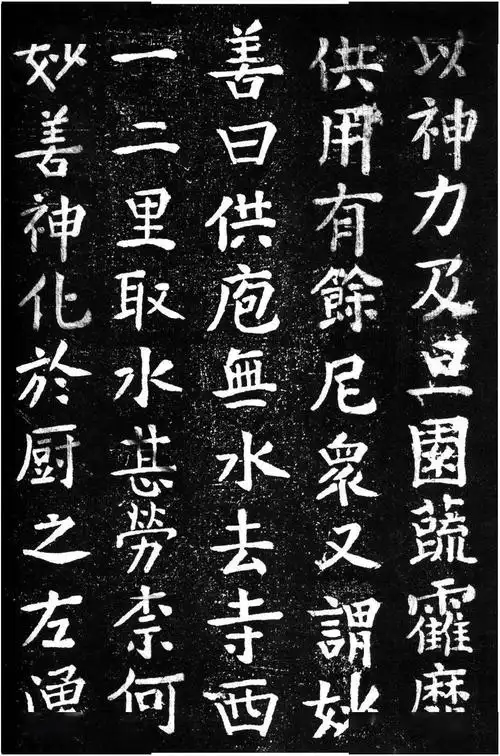 以神力及旦園蔬靃靡
供用有餘尼眾又謂妙
善曰供庖無水去寺西
一二里取水甚勞柰何
妙善神化於厨之左湧